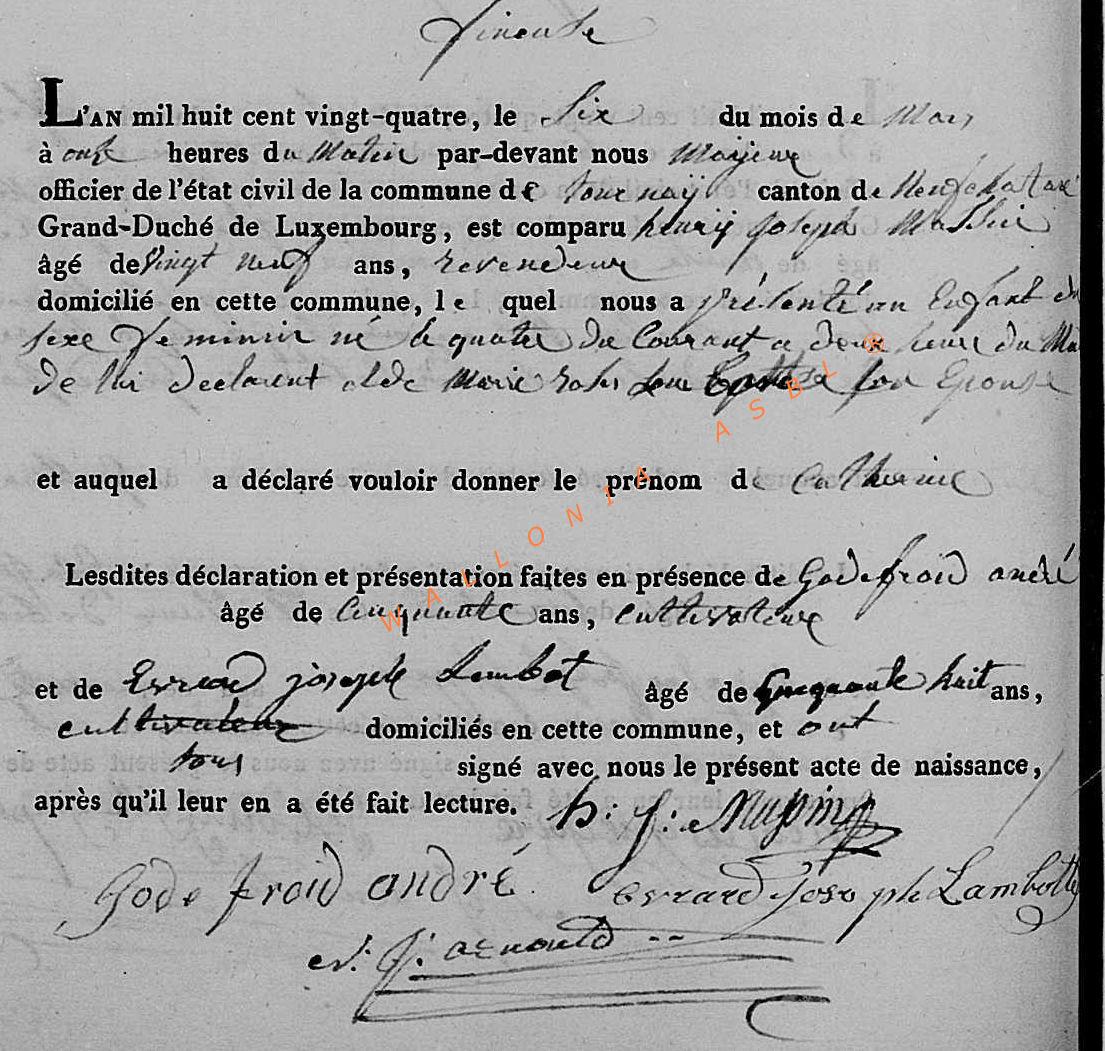 L'AN mil huit cent vingt-quatre, le Six du mois de Mars
à onze heures du Matin par-devant nous Majeur
officier de l'état civil de la commune de tournaÿ canton de Neufchateau
Grand-Duché de Luxembourg, est comparu henrÿ joseph Massin
âgé de Vingt neuf ans, revendeur
domicilié en cette commune, le quel nous a présenté un Enfant du
sexe feminin né le quatre du Courant a deux heure du Ma
de lui declarent et de Marie son Epouse
et auquel a déclaré vouloir donner le prénom de Catherine
Lesdites déclaration et présentation faites en présence de Godefroid andré
âgé de Cinquante ans, cultivateur
et de Evrard joseph Lambot âgé de Cinquante huit ans,
cultivateur domiciliés en cette commune, et ont
tous signé avec nous le présent acte de naissance,
après qu'il leur en a été fait lecture. h: j: Massin
Godefroid andré evrard Joseph Lambotte
j: arnould
WALLONIA ASBL ®